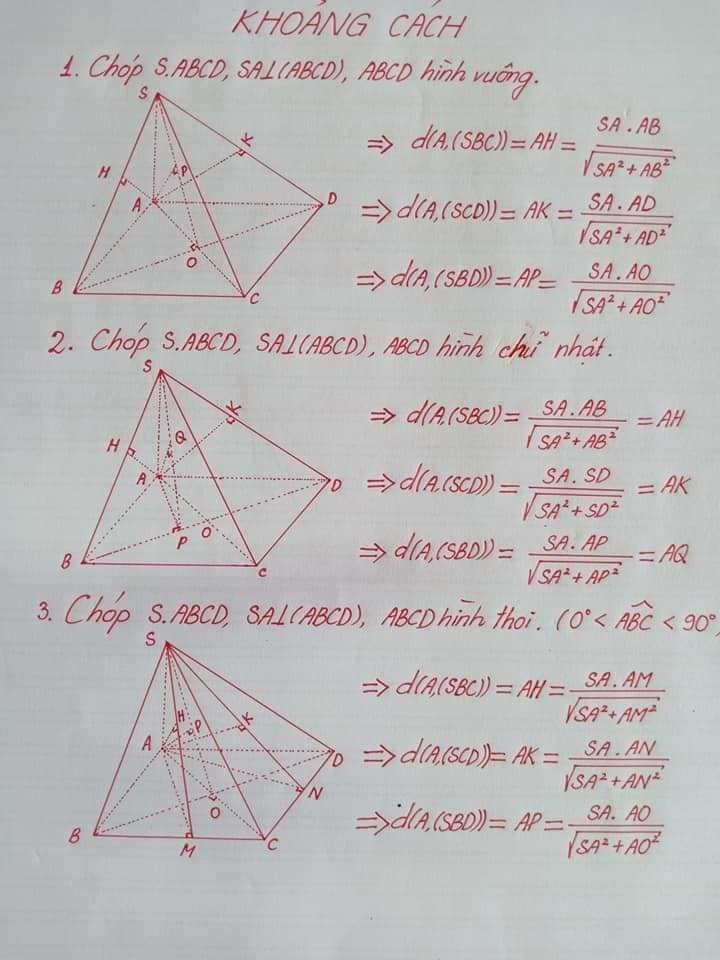 KHOẢNG CÁCH
1. Chóp S.ABCD, SA⊥(ABCD), ABCD hình vuông.
S
K
H
P
A
D
O
B
C
⇒ d(A,(SBC)) = AH = SA.AB / √(SA²+AB²)
⇒ d(A,(SCD)) = AK = SA.AD / √(SA²+AD²)
⇒ d(A,(SBD)) = AP = SA.AO / √(SA²+AO²)
2. Chóp S.ABCD, SA⊥(ABCD), ABCD hình chữ nhật.
S
K
H
Q
A
D
P
O
B
C
⇒ d(A,(SBC)) = SA.AB / √(SA²+AB²) = AH
⇒ d(A,(SCD)) = SA.SD / √(SA²+SD²) = AK
⇒ d(A,(SBD)) = SA.AP / √(SA²+AP²) = AQ
3. Chóp S.ABCD, SA⊥(ABCD), ABCD hình thoi. (0° < ABC < 90°,
S
H
P
K
A
D
N
O
B
M
C
⇒ d(A,(SBC)) = AH = SA.AM / √(SA²+AM²)
⇒ d(A,(SCD)) = AK = SA.AN / √(SA²+AN²)
⇒ d(A,(SBD)) = AP = SA.AO / √(SA²+AO²)